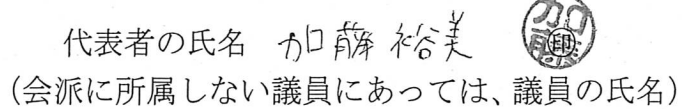 代表者の氏名 加藤裕美 加藤 ㊞
(会派に所属しない議員にあっては、議員の氏名)